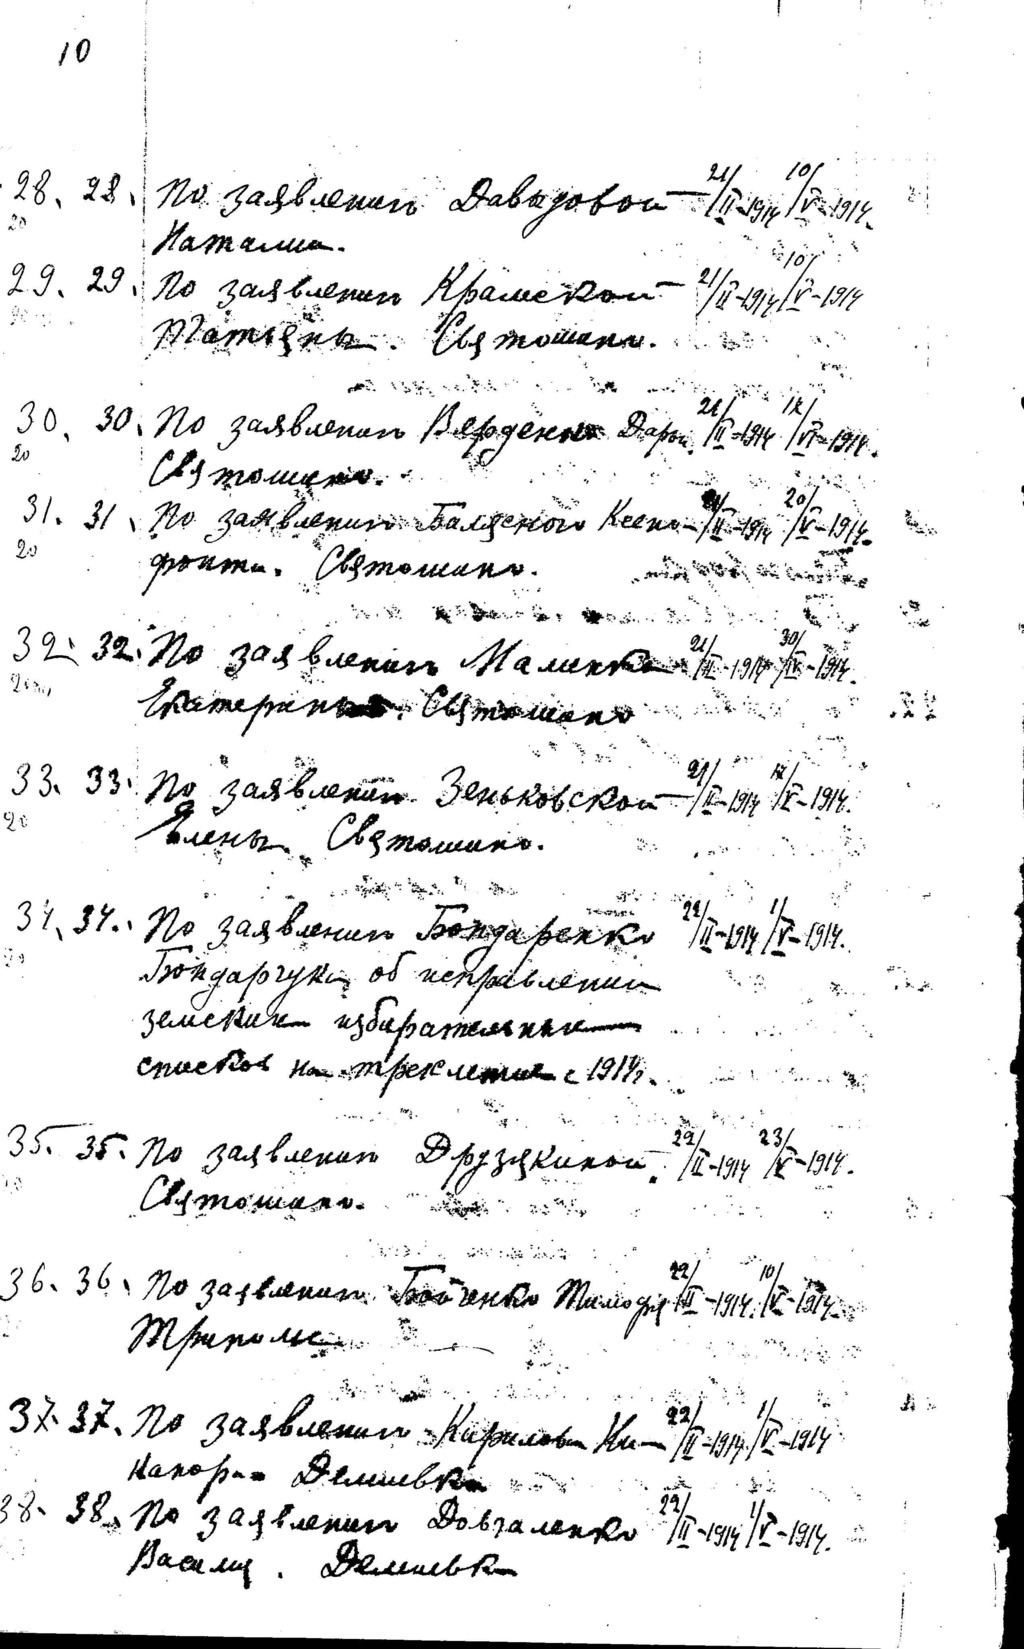 10
28. 28. По заявлению Давыдовой — 21/II-1914 10/V-1914.
20 Наталии.
29. 29. По заявлению Крамской — 21/II-1914 10/V-1914
Татьяны. Святошино.
30. 30. По заявлению Дарьи. 21/II-1914 12/VI-1914.
20 Святошино.
31. 31. По заявлению Балясного Ксено- 21/II-1914 20/V-1914.
20 фонта. Святошино.
32. 32. По заявлению Малинко 21/II-1914 30/IV-1914.
Екатерины. Святошино
33. 33. По заявлению Зеньковской — 21/II-1914 12/V-1914.
20 Елены. Святошино.
34. 34. По заявлению Бондаренко 22/II-1914 1/V-1914.
20 Бондарчука об исправлении
земских избирательных
списков на трехлетие с 1914г.
35. 35. По заявлению Друзякиной. 22/II-1914 23/V-1914.
Святошино.
36. 36. По заявлению Бойченко Тимофея 22/II-1914. 10/V-1914.
Триполье
37. 37. По заявлению Кирилова Ни- 22/II-1914 1/V-1914
Демиевка
38. 38. По заявлению Довгаленко 22/II-1914 1/V-1914.
Василия. Демиевка